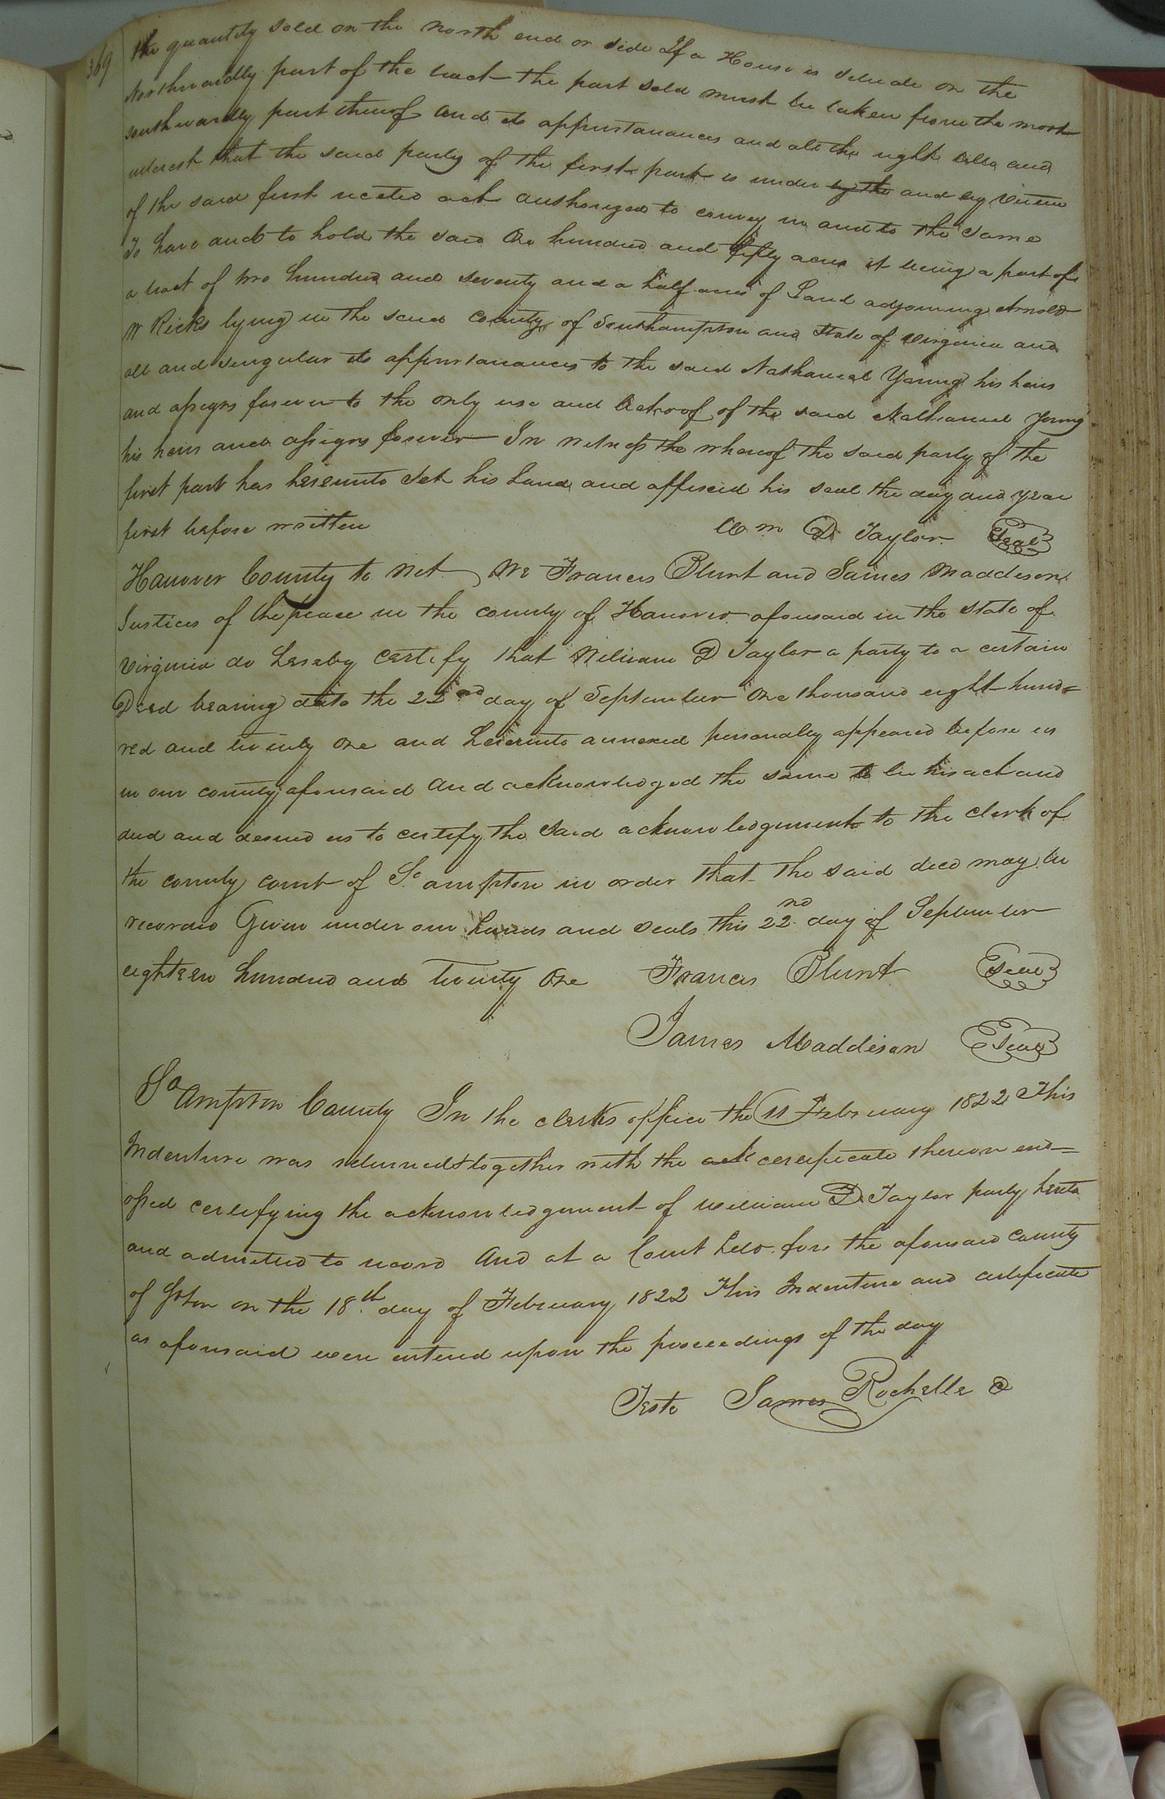 369
the quantity sold on the North end or side If a House is situate on the
Northwardly part of the tract the part sold must be taken from the most
southwardly part thereof and its appurtanances and all the right title and
interest that the said party of the first part is under by the and by virtue
of the said first recited act authorized to convey in and to the same
To have and to hold the said One hundred and fifty acres it being a part of
a tract of two hundred and seventy and a half acres of Land adjoining Arnold
W Ricks lying in the said County of Southampton and State of Virginia and
all and singular its appurtanances to the said Nathaniel Young his heirs
and assigns forever to the only use and behoof of the said Nathaniel Young
his heirs and assigns forever In witness the whereof the said party of the
first part has hereunto set his hand and affixed his seal the day and year
first before written Wm D. Taylor Seal
Hanover County to wit We Francis Blunt and James Maddison
Justices of the peace in the county of Hanover aforesaid in the State of
Virginia do hereby certify that William D Taylor a party to a certain
Deed bearing date the 22nd day of September One thousand eight hund=
red and twenty One and hereunto annexed personally appeared before us
in our county aforesaid and acknowledged the same to be his act and
deed and desired us to certify the said acknowledgment to the clerk of
the county court of So ampton in order that the said deed may be
recorded Given under our hands and seals this 22nd day of September
eighteen hundred and twenty One Francis Blunt Seal
James Maddison Seal
So ampton County In the clerks office the 11 February 1822 This
Indenture was returned together with the certificate thereon end=
ofsed certifying the acknowledgment of William D. Taylor party hereto
and admitted to record And at a Court held for the aforesaid county
of on the 18th day of February 1822 This Indenture and certificate
as aforesaid were entered upon the proceedings of the day
Teste James Rochelle